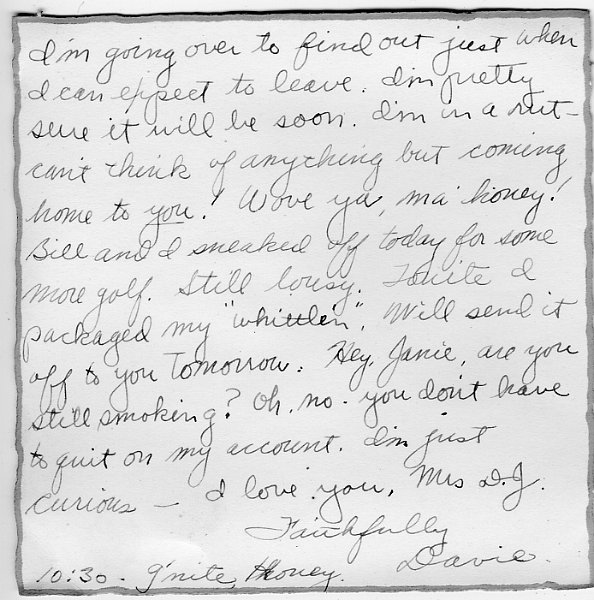 I'm going over to find out just when
I can expect to leave. I'm pretty
sure it will be soon. I'm in a rut-
can't think of anything but coming
home to you! Wove ya, ma' honey!
Bill and I sneaked off today for some
more golf. Still lousy. Tonite I
packaged my "whittlin". Will send it
off to you tomorrow. Hey, Janie, are you
still smoking? Oh, no - you don't have
to quit on my account. I'm just
curious - I love you, Mrs D.J.
Faithfully
Davie.
10:30 - g'nite, honey.